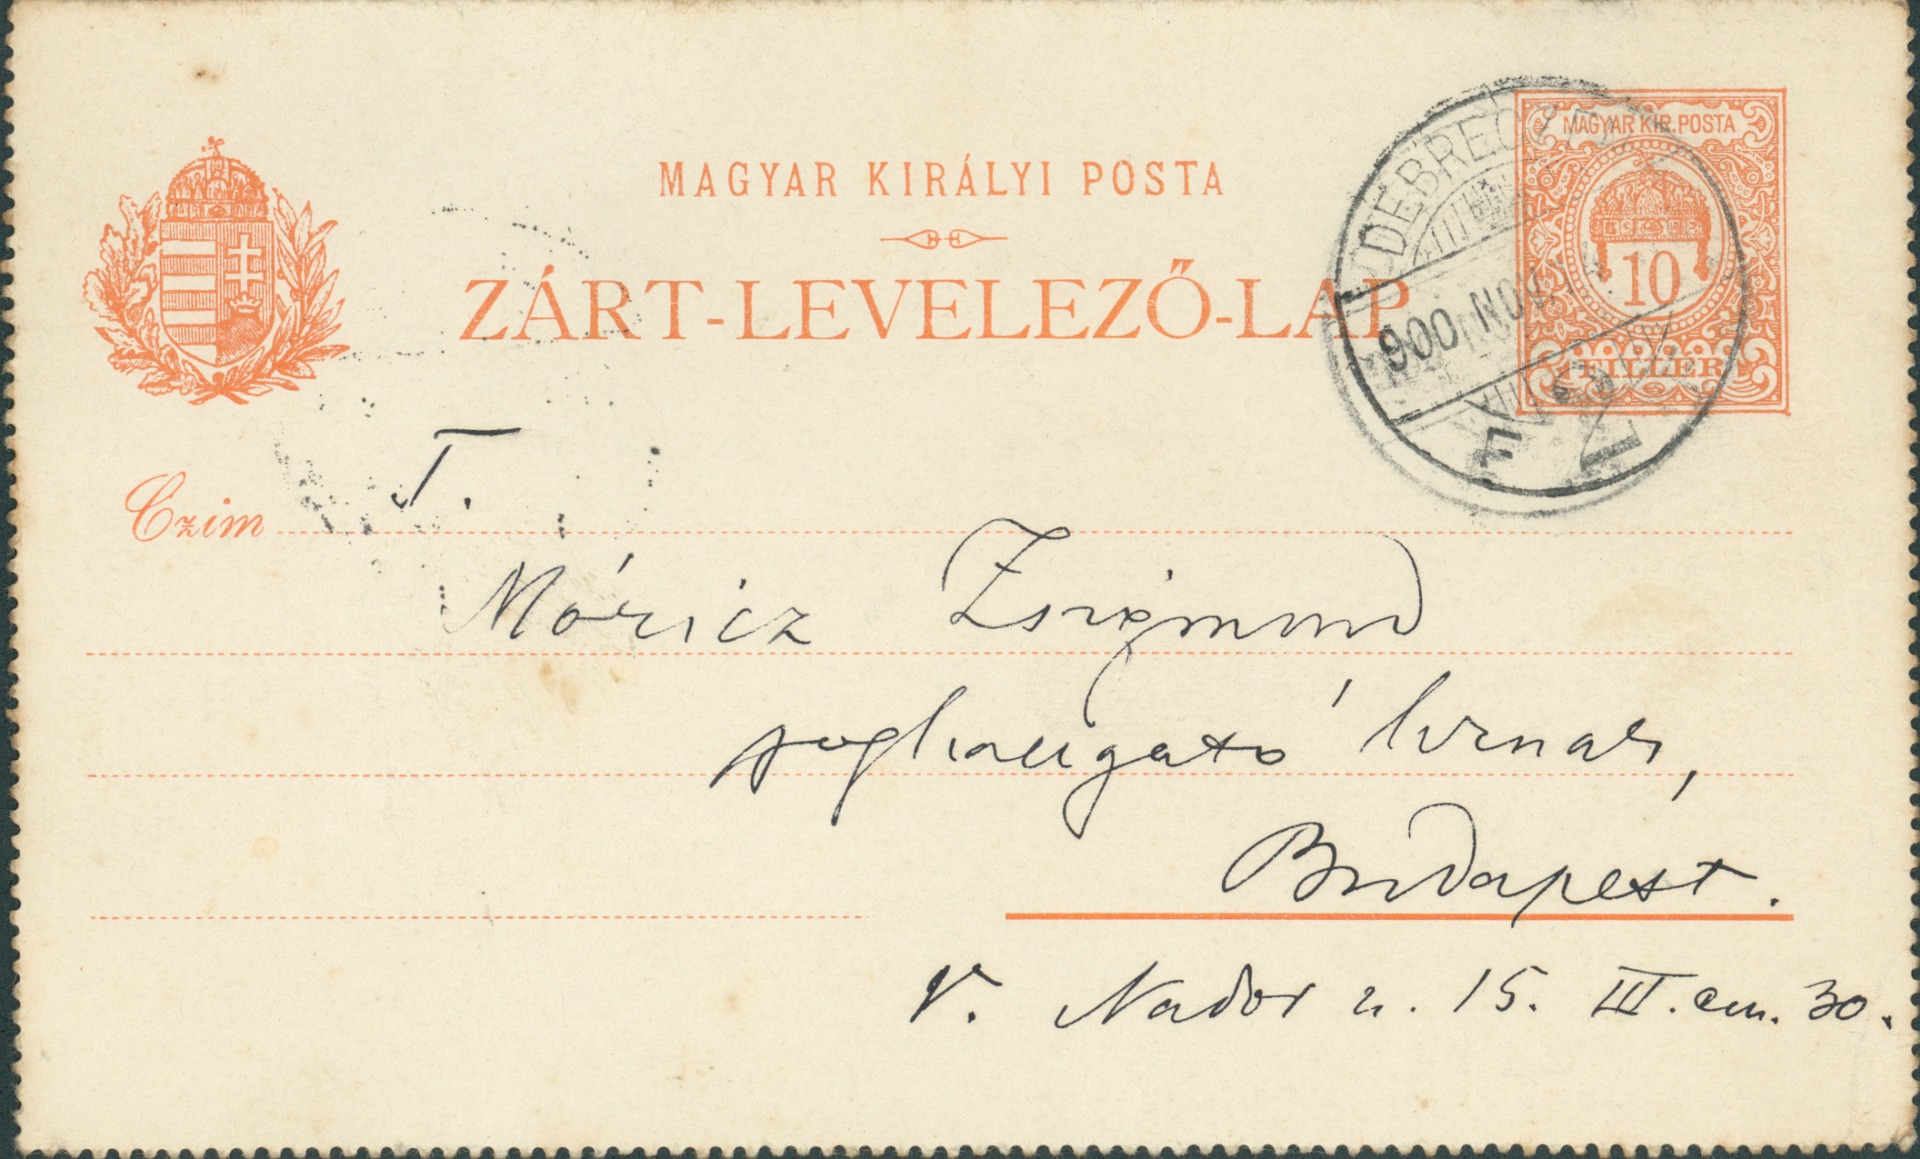 MAGYAR KIRÁLYI POSTA
ZÁRT-LEVELEZŐ-LAP
MAGYAR KIR. POSTA
10
FILLÉR
DEBRECZEN
900 NOV 14
Czim
T.
Móricz Zsigmond
joghallgató úrnak,
Budapest.
V. Nador u. 15. III. em. 30.